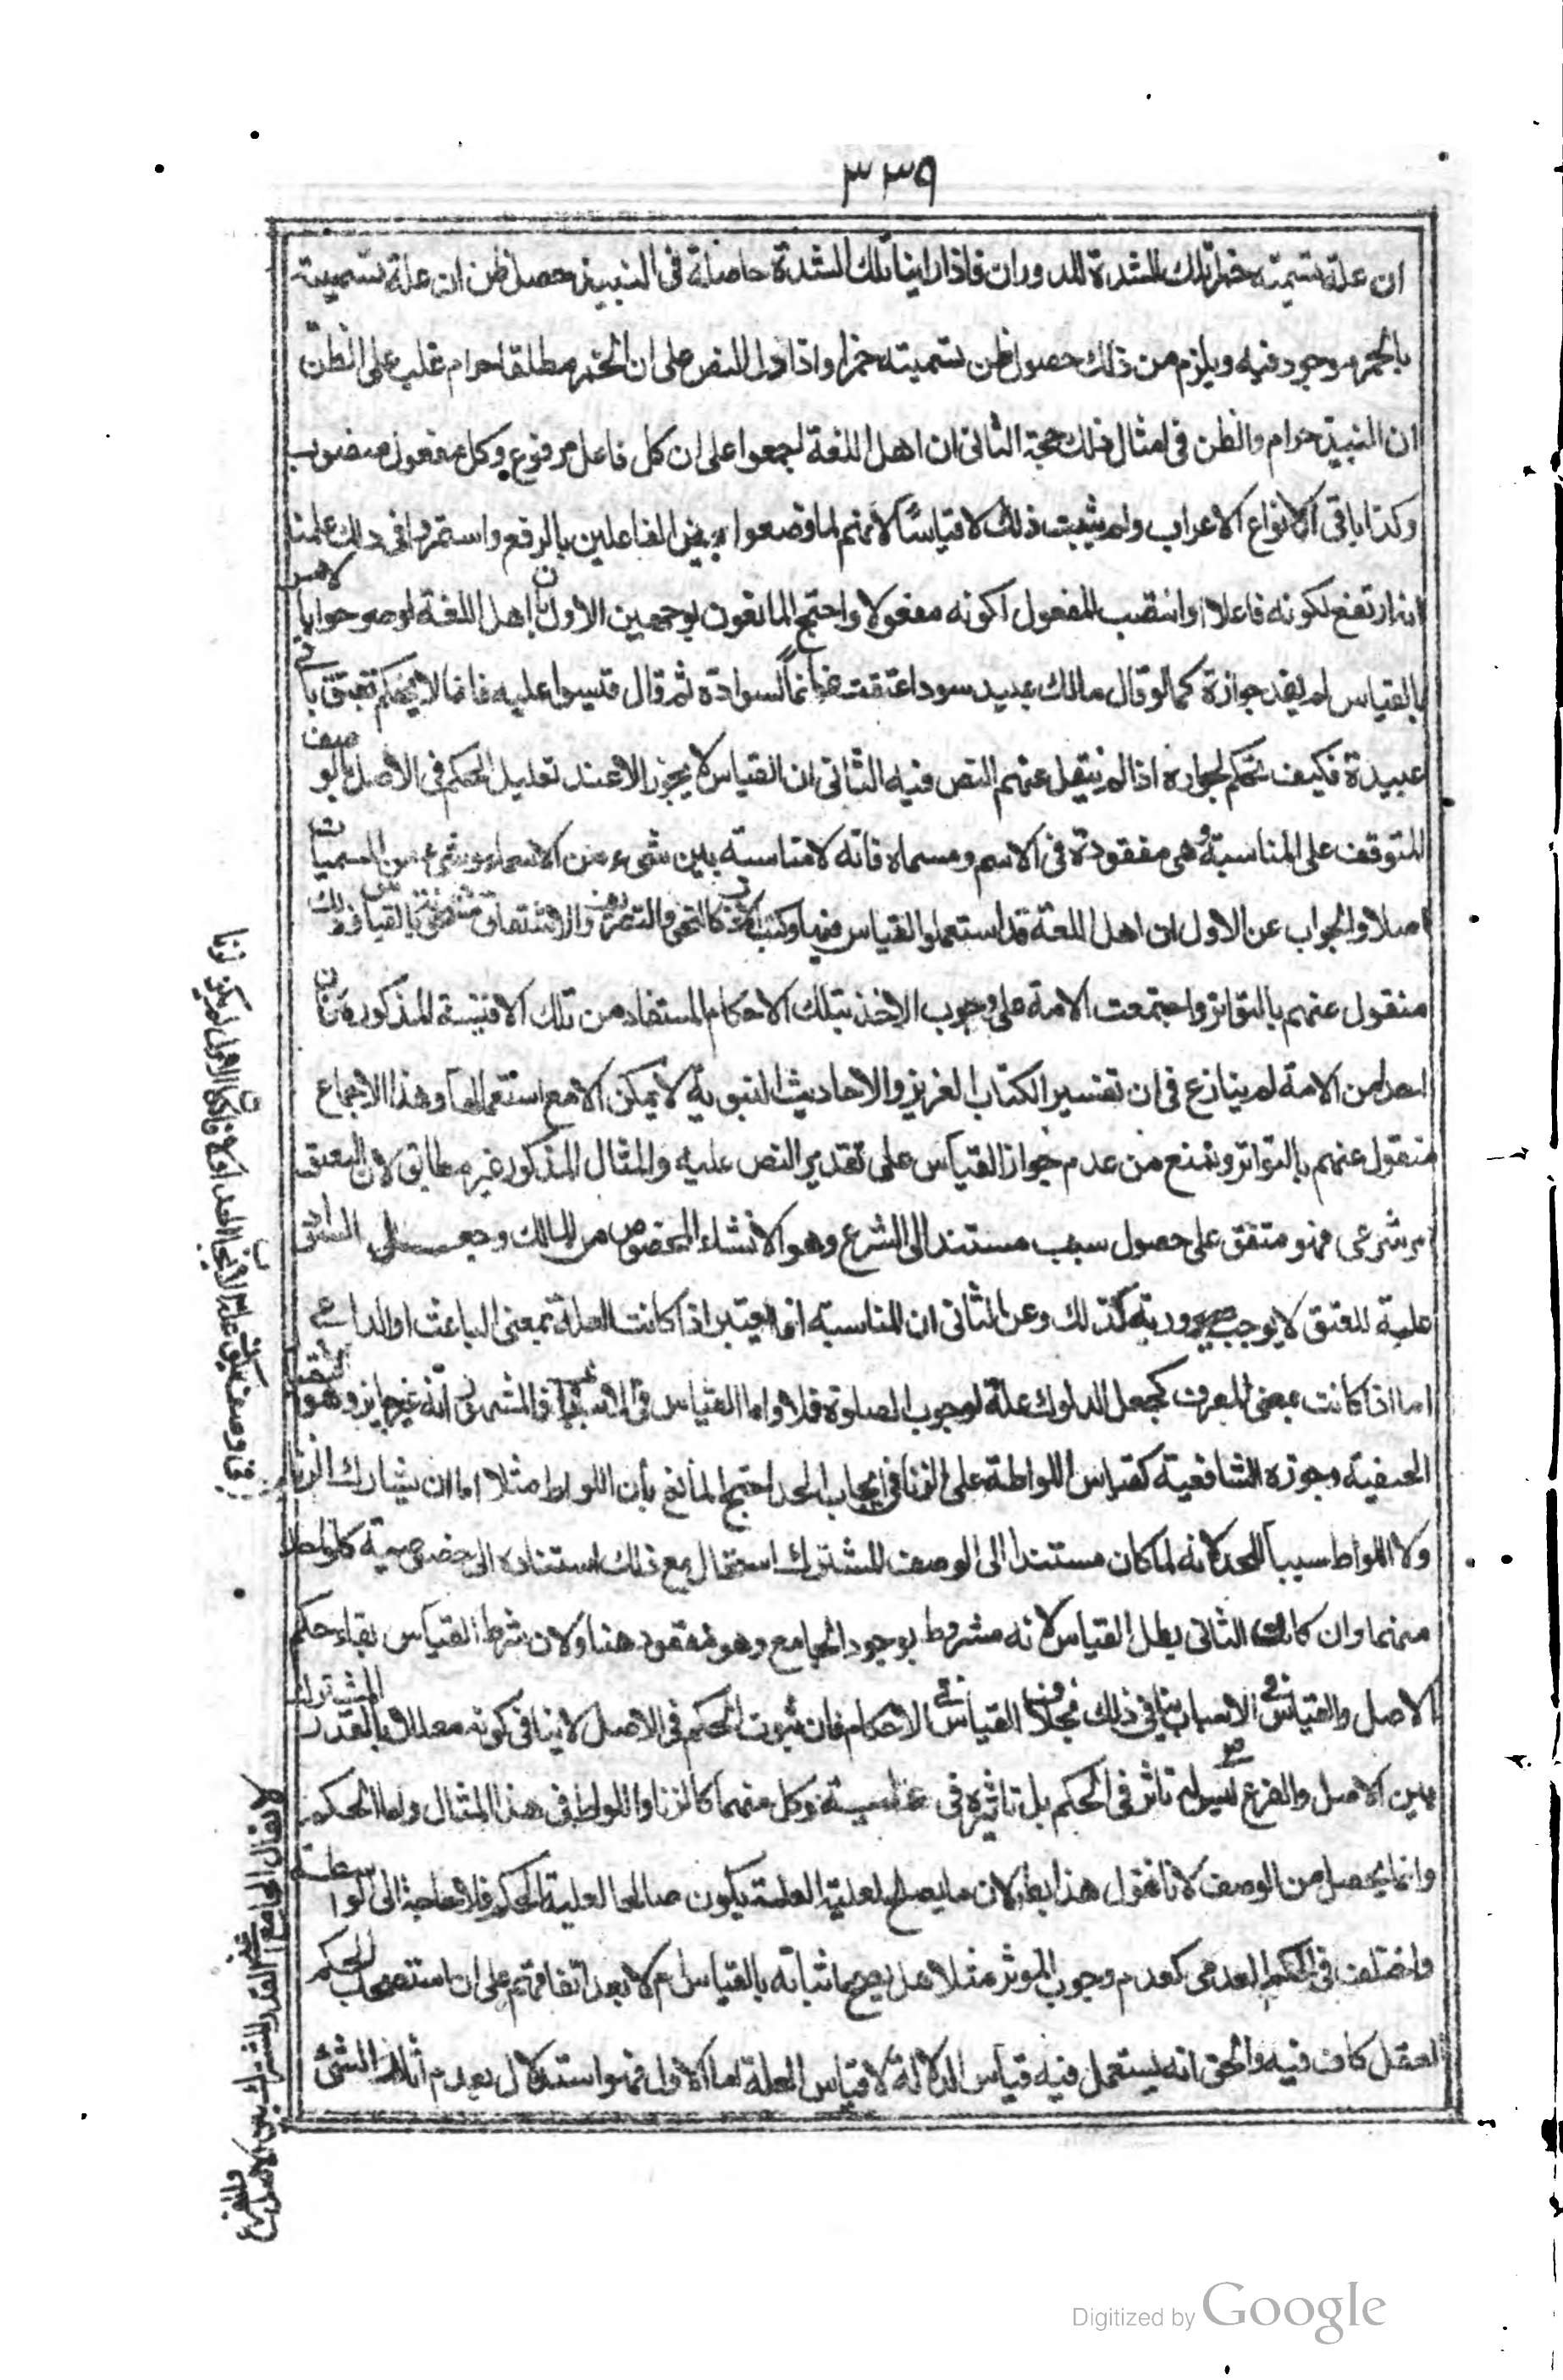 ٣٣٩
ان علة تسميته خمرا تلك الشدة للدوران فاذا راينا تلك الشدة حاصلة فى النبيذ حصل ظن ان علة تسميته
بالخمر موجود فيه ويلزم من ذلك حصول ظن تسميته خمرا واذا دل النص على ان الخمر مطلقا حرام غلب على الظن
ان النبيذ حرام والظن فى امثال ذلك حجة الثانى ان اهل اللغة اجمعوا على ان كل فاعل مرفوع وكل مفعول منصوب
وكذا باقى الانواع الاعراب ولم يثبت ذلك الا قياسًا لانهم لما وصعوا بعض الفاعلين بالرفع واستمروا فى ذلك علمنا
انه ارتفع لكونه فاعلا وانتصب المفعول لكونه مفعولا واحتج المانعون بوجهين الاول ان اهل اللغة لو صرحوا با
بالقياس لم يفد جوازه كما لو قال مالك عبيد سود اعتقت غانمًا لسواده ثم قال قيسوا عليه فانا لا نحكم بعتق باقى
عبيده فكيف نحكم بجوازه اذا لم ينقل عنهم النص فيه الثانى ان القياس لا يجوز الا عند تعليل الحكم فى الاصل بالوصف
المتوقف على المناسبة وهى مفقودة فى الاسم ومسماه فانه لا مناسبة بين شىء من الاسماء وشىء من المسميات
اصلا والجواب عن الاول ان اهل اللغة قد استعملوا القياس فيها وكتب كالنحو والتصريف والاشتقاق بالقياس وذلك
منقول عنهم بالتواتر واجتمعت الامة على وجوب الاخذ بتلك الاحكام المستفاد من تلك الاقيسة المذكورة فان
احدا من الامة لم ينازع فى ان تفسير الكتاب العزيز والاحاديث النبوية لا يمكن الا مع استعمالها وهذا الاجماع
منقول عنهم بالتواتر ونمنع من عدم جواز القياس على تقدير النص عليه والمثال المذكور غير مطابق لان العتق
امر شرعى فهو متفق على حصول سبب مستند الى الشرع وهو الانشاء المخصوص من المالك وجعل السواد
علية للعتق لا يوجب صيرورته كذلك وعن الثانى ان المناسبة انما يعتبر اذا كانت العلة بمعنى الباعث او الداعى
اما اذا كانت بمعنى المعرف كجعل الدلوك علة لوجوب الصلوة فلا واما القياس فى الاسباب فالمشهور انه غير جايز وهو
الحنفية وجوزه الشافعية كقياس اللواطة على الزنا فى ايجاب الحد احتج المانع بان اللواط مثلا اما ان يشارك الزنا
ولا اللواط سببا للحد لانه لما كان مستندا الى الوصف المشترك استحال مع ذلك استناده الى خصوصية كل واحد
منهما وان كان الثانى بطل القياس لانه مشروط بوجود الجامع وهو مفقود هنا ولان شرط القياس بقاء حكم
الاصل والقياس فى الاسباب ينافى ذلك بخلاف القياس فى الاحكام فان ثبوت الحكم فى الاصل لا ينافى كونه معللا بالقدر المشترك
بين الاصل والفرع ليس له تاثر فى الحكم بل تاثيره فى وكل منهما كالزنا واللواط فى هذا المثال واما الحكم
وانما يحصل من الوصف لانا نقول هذا باطل لان ما يصلح لعلية العلة يكون صالحا لعلية الحكم فلا حاجة الى الواسطة
واختلف فى الحكم العدمى كعدم وجوب الموثر مثلا هل يصح اثباته بالقياس ام لا بعد اتفاقهم على ان استصحاب الحكم
العقل كاف فيه والحق انه يستعمل فيه قياس الدلالة لا قياس العلة اما الاول فهو استدلال بعدم اثار الشئ
لا يقال الجامع القدر المشترك بين الاصل والفرع